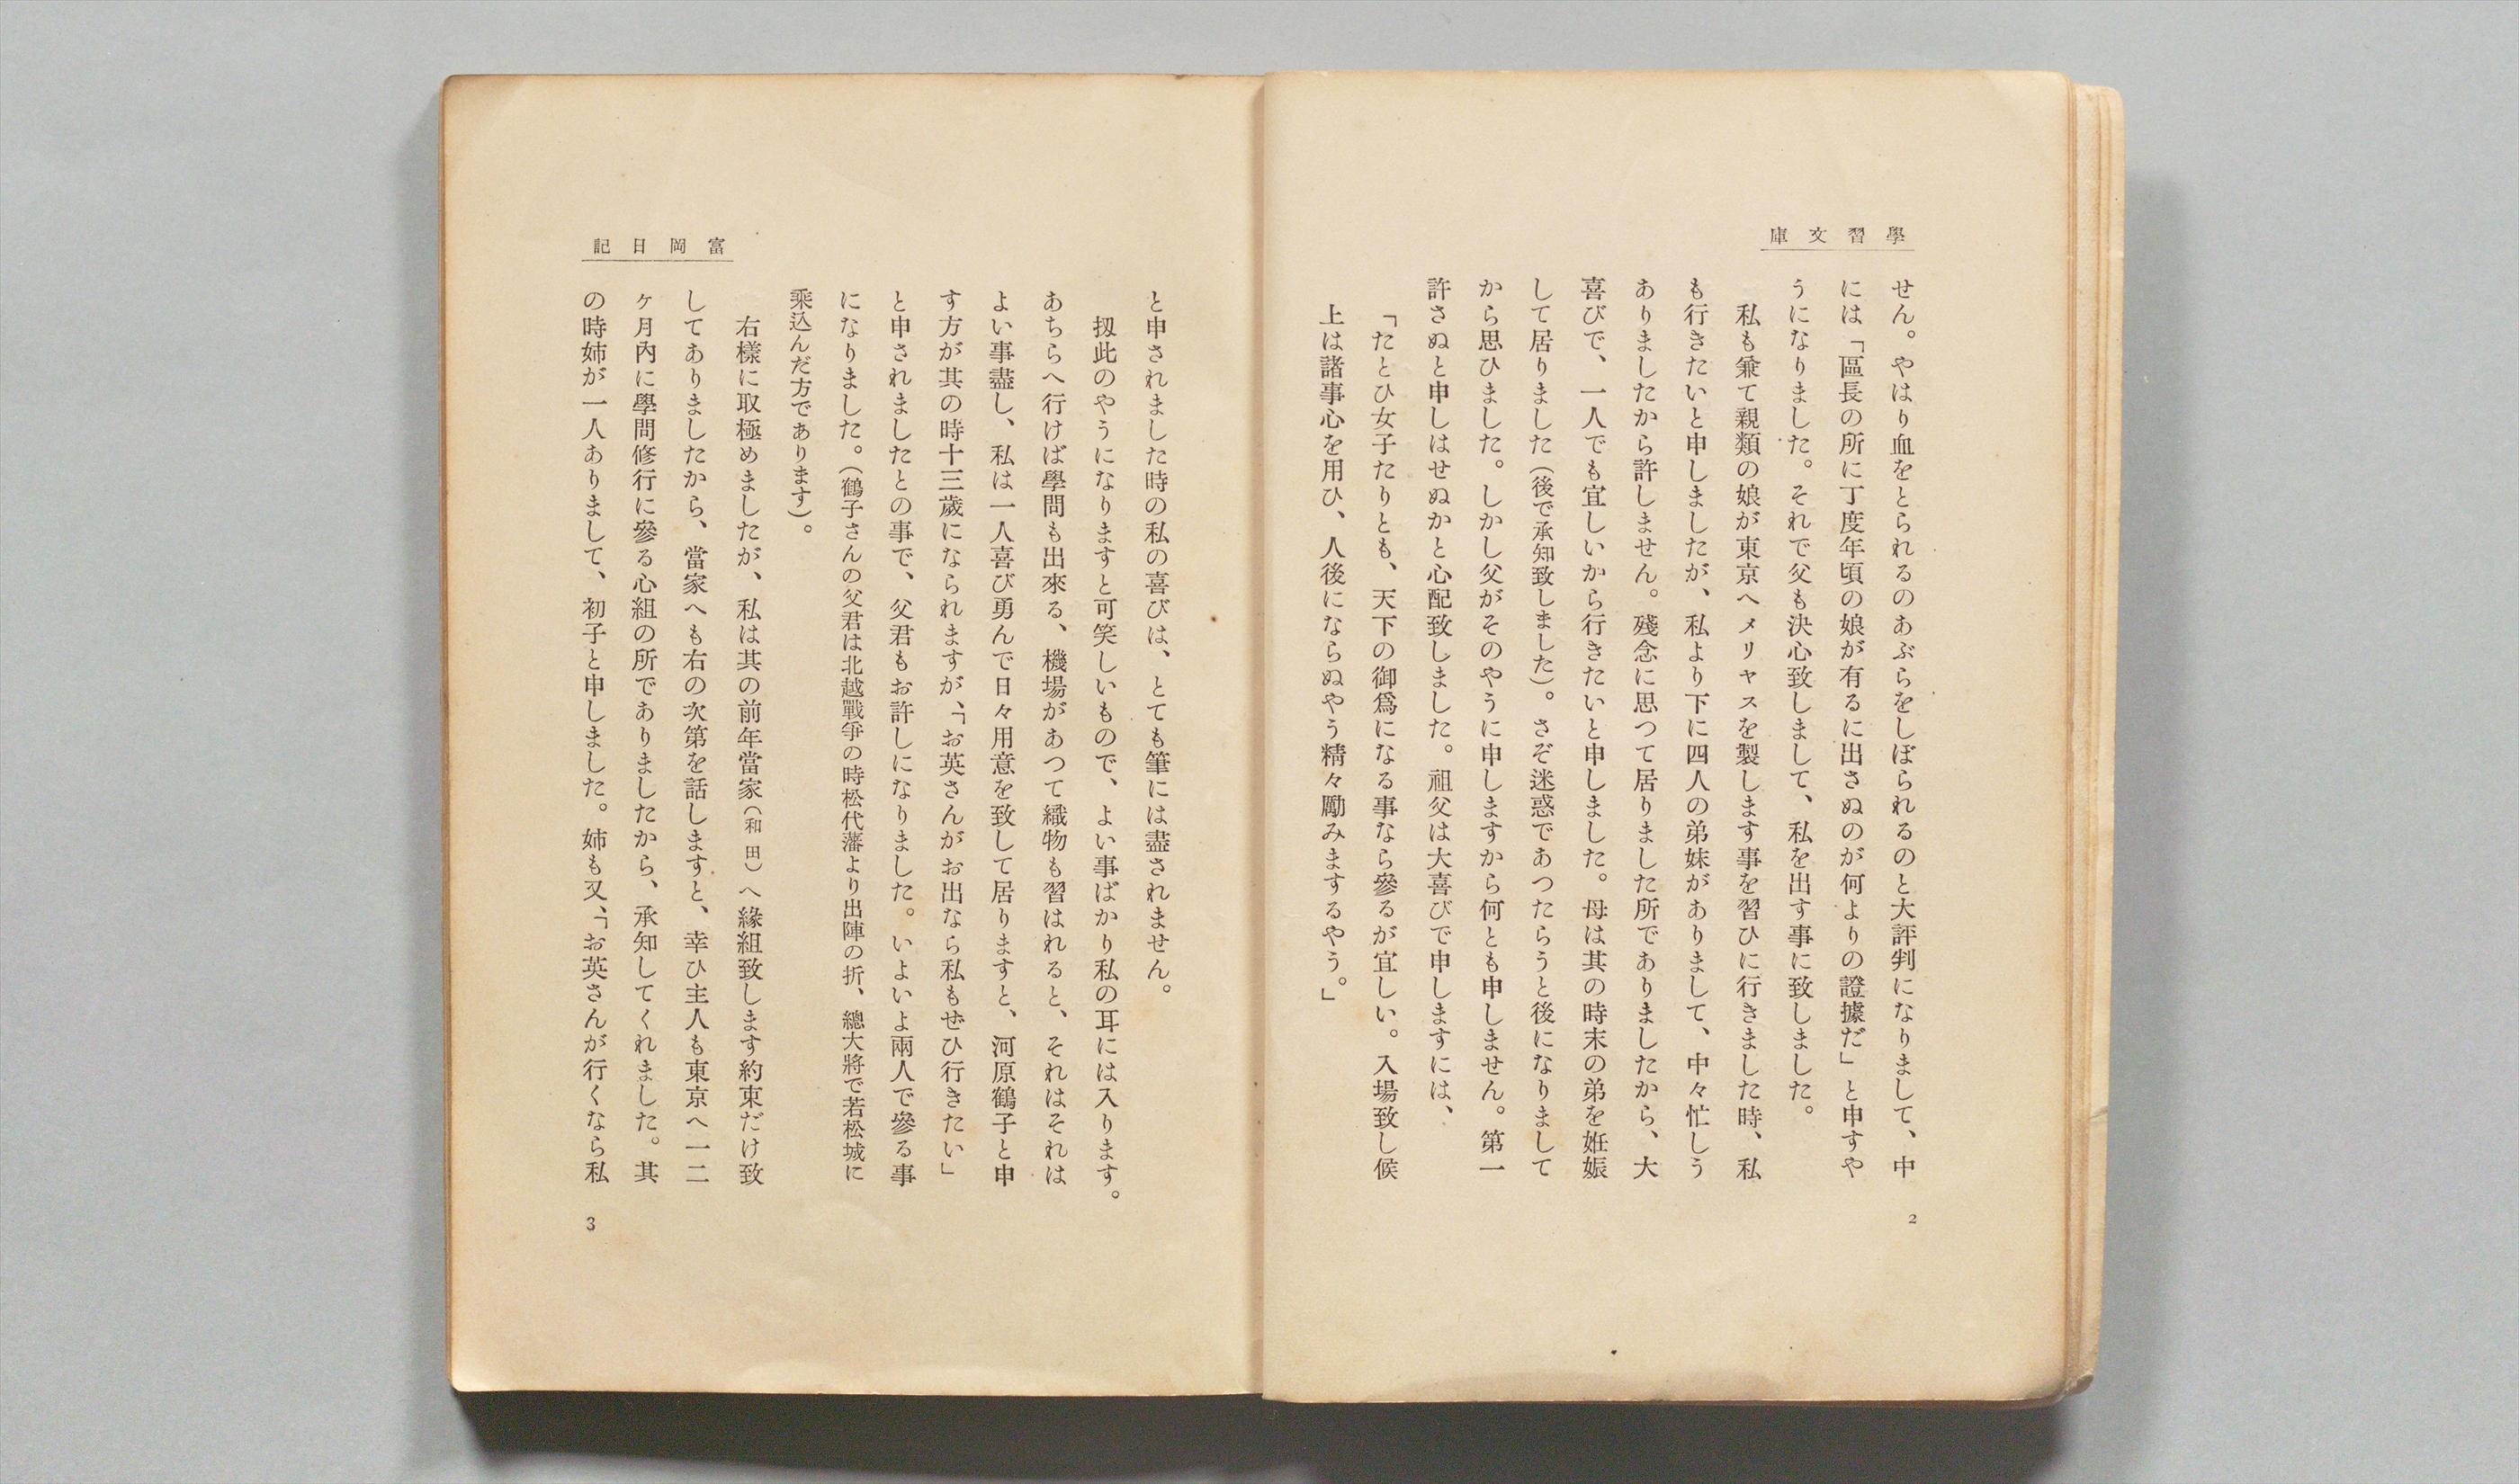 學習文庫
せん。やはり血をとられるのあぶらをしぼられるのと大評判になりまして、中
には「區長の所に丁度年頃の娘が有るに出さぬのが何よりの證據だ」と申すや
うになりました。それで父も決心致しまして、私を出す事に致しました。
私も兼て親類の娘が東京へメリヤスを製します事を習ひに行きました時、私
も行きたいと申しましたが、私より下に四人の弟妹がありまして、中々忙しう
ありましたから許しません。殘念に思つて居りました所でありましたから、大
喜びで、一人でも宜しいから行きたいと申しました。母は其の時末の弟を姙娠
して居りました（後で承知致しました）。さぞ迷惑であつたらうと後になりまして
から思ひました。しかし父がそのやうに申しますから何とも申しません。第一
許さぬと申しはせぬかと心配致しました。祖父は大喜びで申しますには、
「たとひ女子たりとも、天下の御爲になる事なら參るが宜しい。入場致し候
上は諸事心を用ひ、人後にならぬやう精々勵みまするやう。」
2
富岡日記
と申されました時の私の喜びは、とても筆には盡されません。
扨此のやうになりますと可笑しいもので、よい事ばかり私の耳には入ります。
あちらへ行けば學問も出來る、機場があつて織物も習はれると、それはそれは
よい事盡し、私は一人喜び勇んで日々用意を致して居りますと、河原鶴子と申
す方が其の時十三歲になられますが、「お英さんがお出なら私もぜひ行きたい」
と申されましたとの事で、父君もお許しになりました。いよいよ兩人で參る事
になりました。（鶴子さんの父君は北越戰爭の時松代藩より出陣の折、總大將で若松城に
乘込んだ方であります）。
右樣に取極めましたが、私は其の前年當家（和田）へ緣組致します約束だけ致
してありましたから、當家へも右の次第を話しますと、幸ひ主人も東京へ一二
ヶ月內に學問修行に參る心組の所でありましたから、承知してくれました。其
の時姉が一人ありまして、初子と申しました。姉も又、「お英さんが行くなら私
3